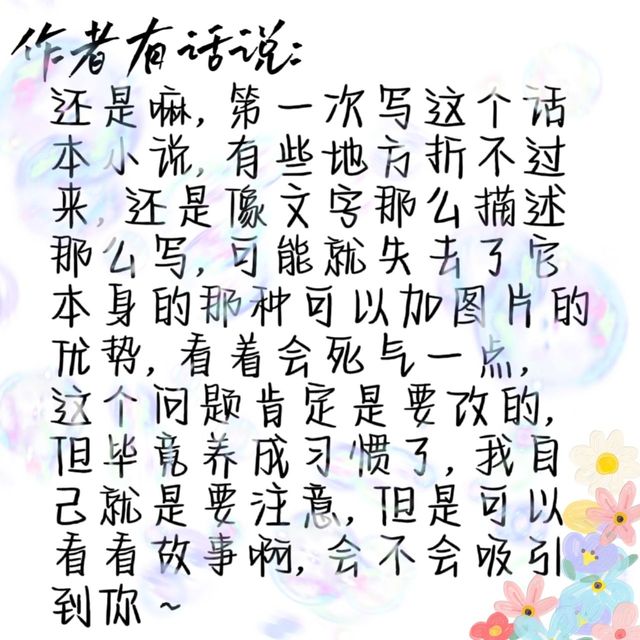 作者有话说:
还是嘛,第一次写这个话
本小说,有些地方折不过
来,还是像文字那么描述
那么写,可能就失去了它
本身的那种可以加图片的
优势,看着会死气一点,
这个问题肯定是要改的,
但毕竟养成习惯了,我自
己就是要注意,但是可以
看看故事啊,会不会吸引
到你~